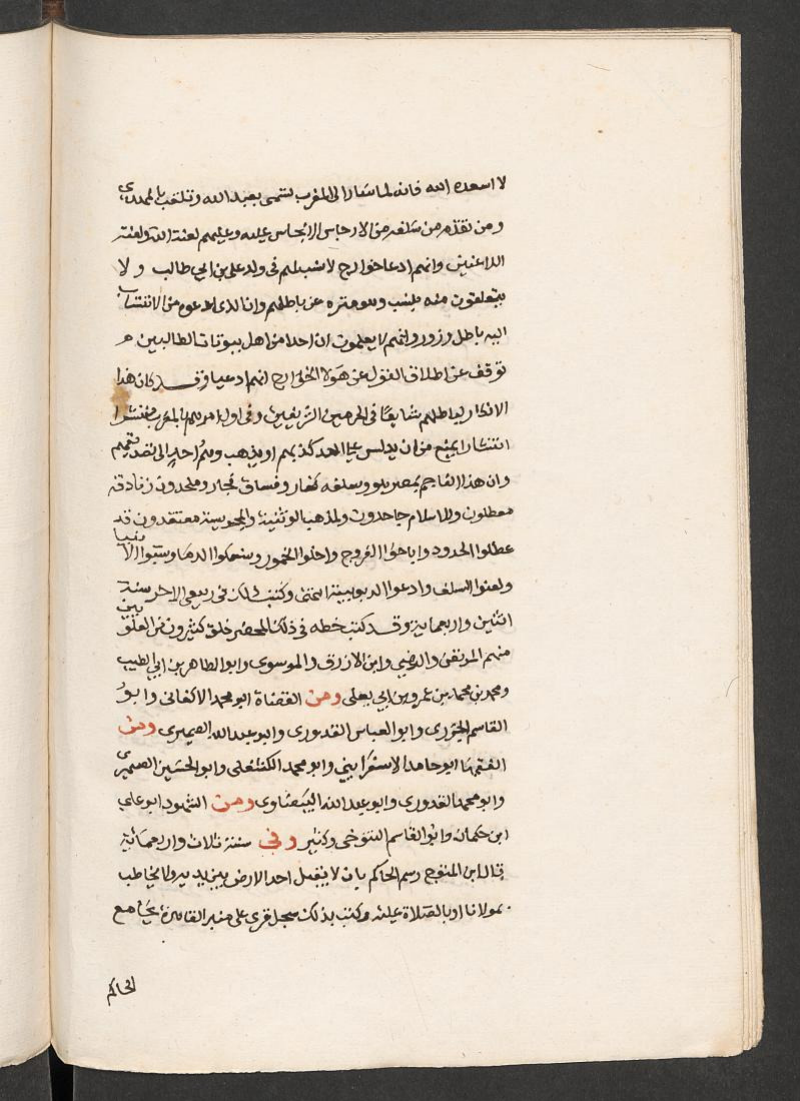 لا اسعده الله فانه لما سار الى المغرب تسمى بعبد الله وتلقب بالمهدي
ومن تقدم من سلفه من الارجاس الانجاس عليه وعليهم لعنة الله ولعنة
اللاعنين وانهم ادعيا خوارج لا نسب لهم فى ولد على بن ابي طالب ولا
يتعلقون منه بسبب وهو منزه عن باطلهم وان الذى ادعوه من الانتساب
اليه باطل وزور وانهم لا يعلمون ان احدا من اهل بيوتات الطالبين
توقف عن اطلاق القول عن هولا الخوارج انهم ادعيا وقد كان هذا
الانكار لباطلهم شايعًا فى الحرمين الشريفين وفى اول امرهم بالمغرب منتشرا
انتشارا يمنع من ان يدلس على احد كذبهم او يذهب وهم احد الى تصديقهم
وان هذا الناجم بمصر هو وسلفه كفار وفساق فجار وملحدون زنادقة
معطلون وللاسلام جاحدون ولمذهب الوثنية والمجوسية معتقدون قد
عطلوا الحدود واباحوا الفروج واحلوا الخمور وسفكوا الدما وسبوا الانبيا
ولعنوا السلف وادعوا الربوبية انتهى وكتب ذلك فى ربيع الاخر سنة
اثنين واربعماية وقد كتب خطه فى ذلك المحضر خلق كثيرون من العلويين
منهم المرتضى والرضي وابن الازرق والموسوى وابو الطاهر بن ابي الطيب
ومحمد بن محمد بن عمرو بن ابي يعلى ومن القضاة ابو محمد الاكفانى وابو
القاسم الجزرى وابو العباس القدورى وابو عبد الله الصيمرى ومن
الفقها ابو حامد الاسفرايني وابو محمد الكشفلى وابو الحسين الصيمرى
وابو محمد القدورى وابو عبد الله البيضاوى ومن الشهود ابو علي
ابن حمكان وابو القاسم التنوخى وكثير وفي سنة ثلاث واربعمائة
قال ابن المتوج رسم الحاكم بان لا يقبل احد الارض بين يديه ولا يخاطب
بمولانا او بالصلاة عليه وكتب بذلك سجل قرى على منبر القاهرة بجامع
الحاكم